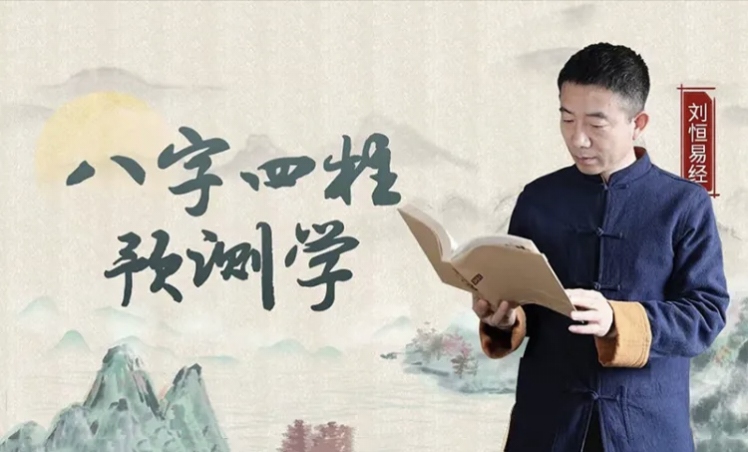 八字四柱
预测学
刘恒易经